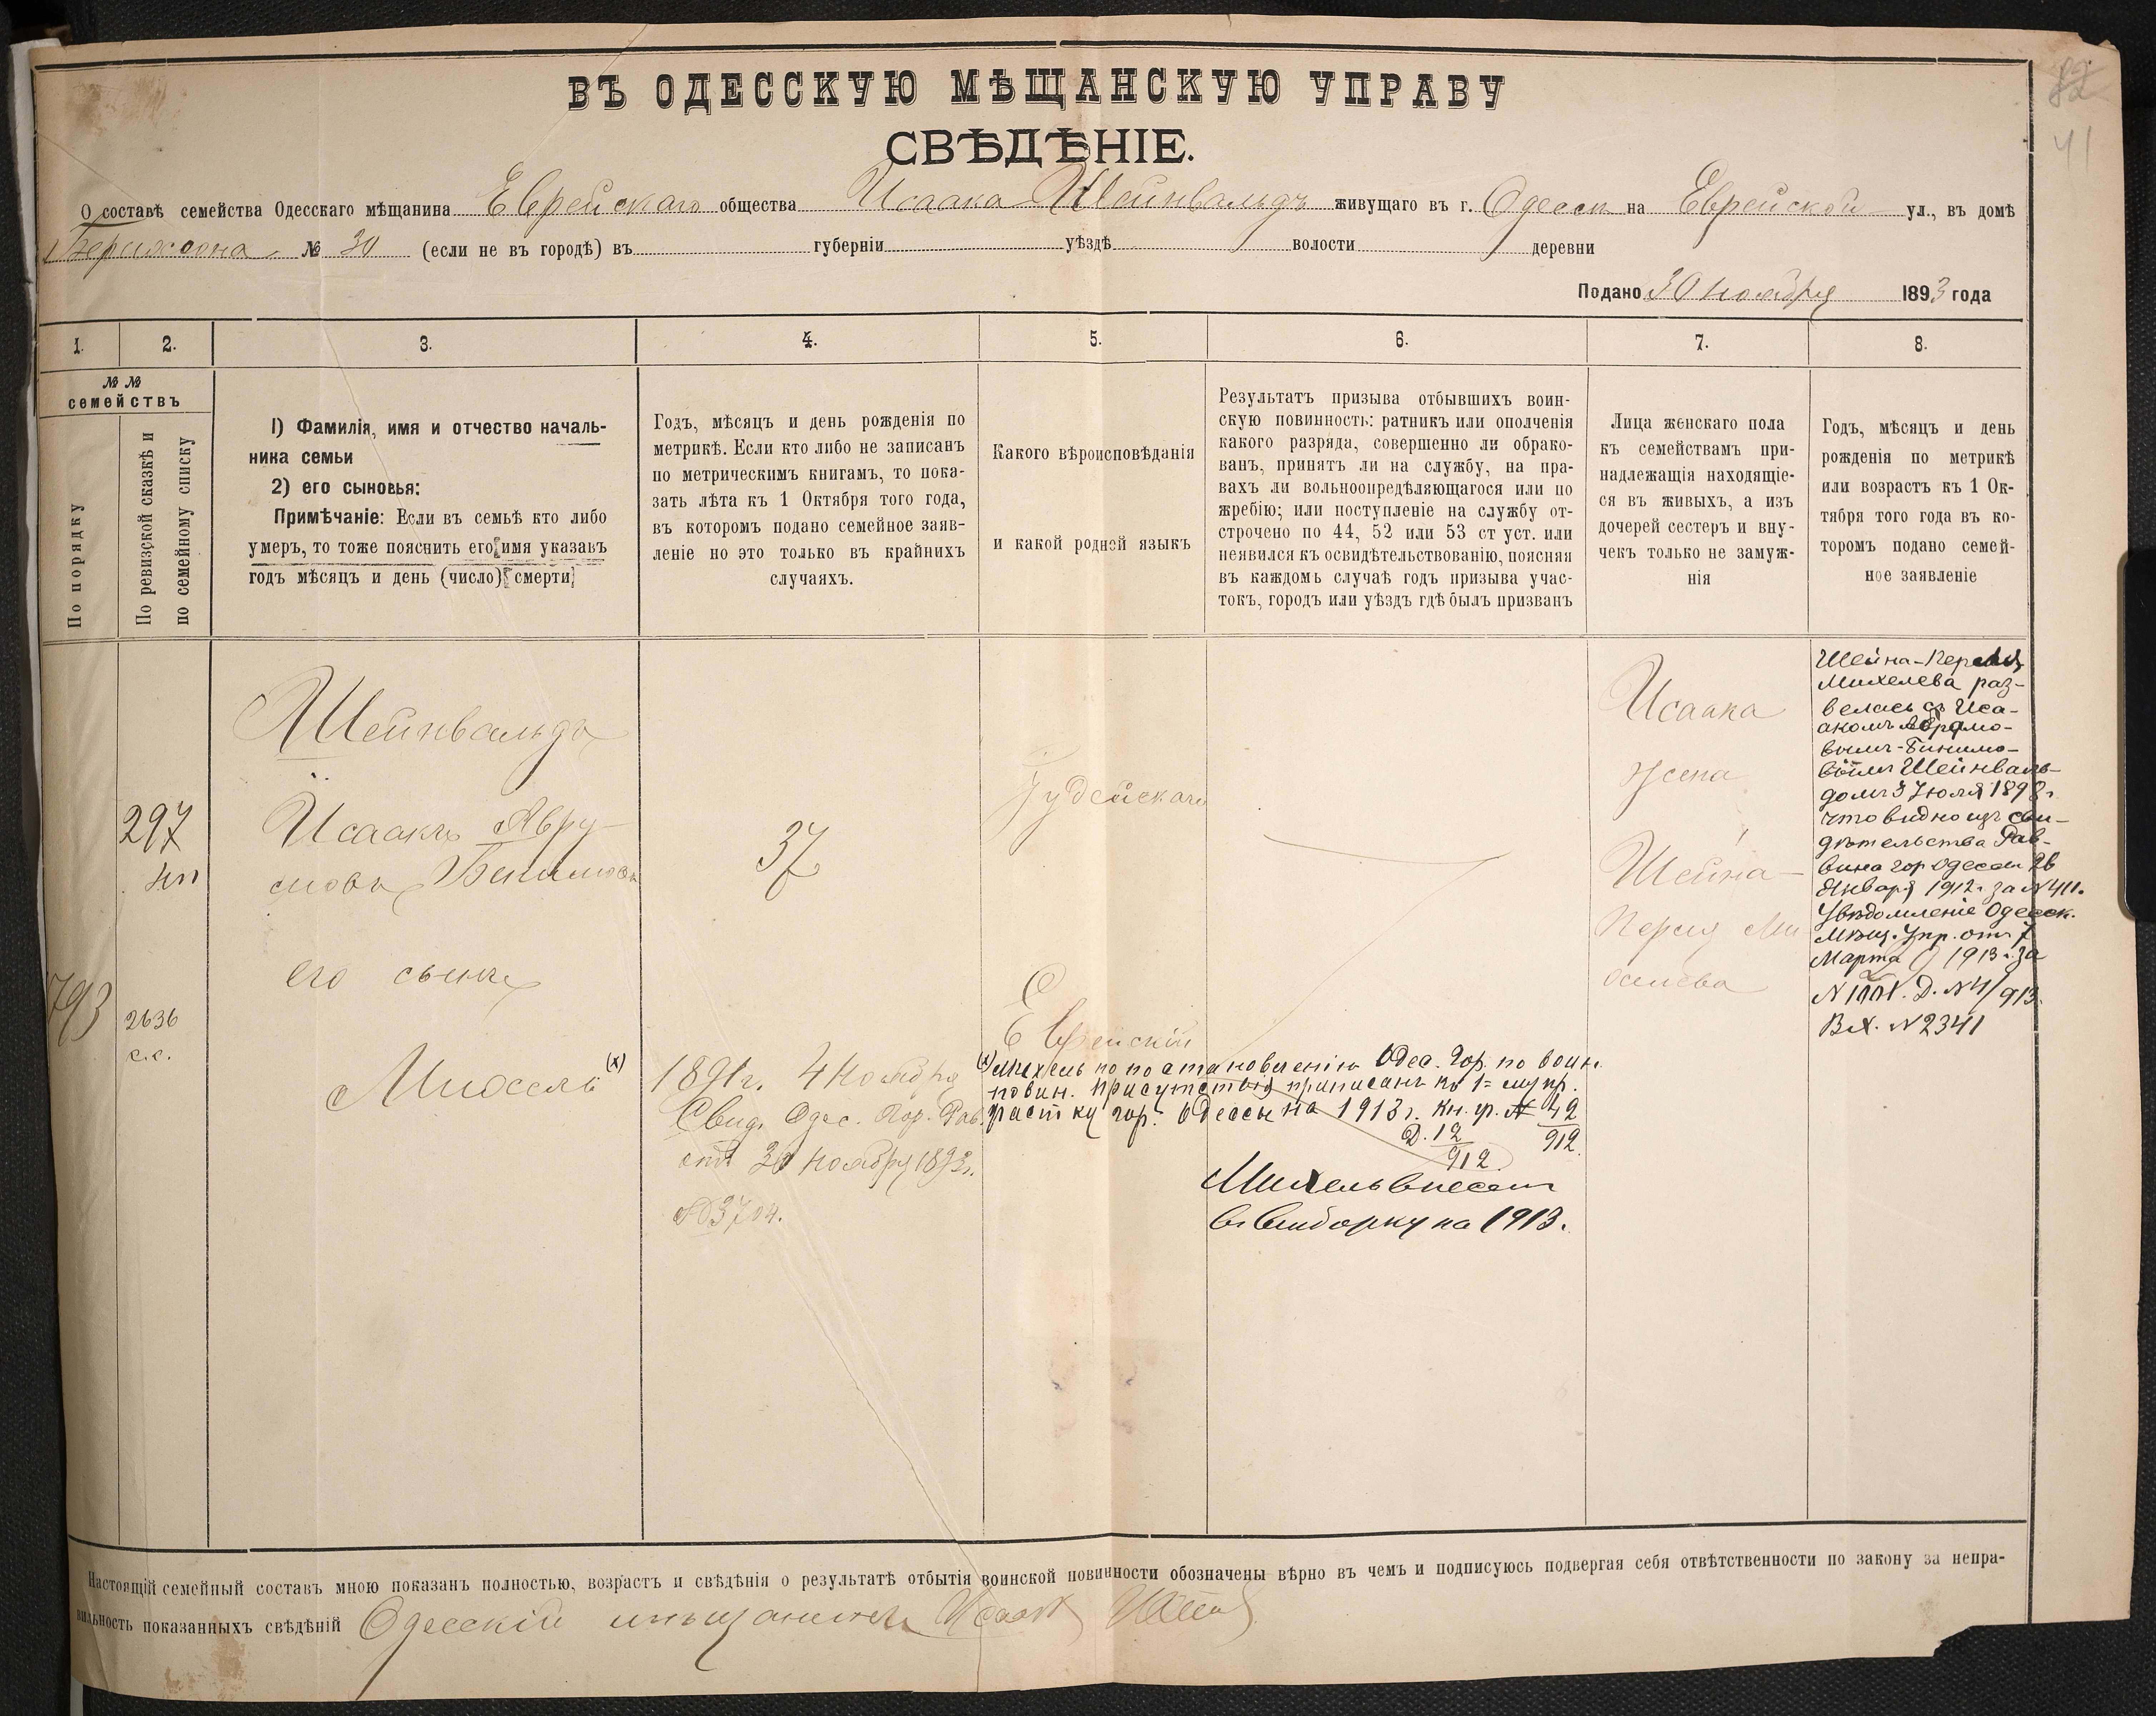 82
41
ВЪ ОДЕССКУЮ МѢЩАНСКУЮ УПРАВУ
СВѢДѢНІЕ.
О составѣ семейства Одесскаго мѣщанина Еврейскаго общества Исаака Шейнвальдъ живущаго въ г. Одессѣ на Еврейской ул., въ домѣ
№ 30 (если не въ городѣ) въ губерніи уѣздѣ волости деревни
Подано 30 Ноября 1893 года
1.
2.
3.
4.
5.
6.
7.
8.
№ №
семействъ
По порядку
По ревизской сказкѣ и
по семейному списку
1) Фамилія, имя и отчество началь-
ника семьи
2) его сыновья:
Примѣчаніе: Если въ семьѣ кто либо
умеръ, то тоже пояснить его имя указавъ
годъ мѣсяцъ и день (число) смерти
Годъ, мѣсяцъ и день рожденія по
метрикѣ. Если кто либо не записанъ
по метрическимъ книгамъ, то пока-
зать лѣта къ 1 Октября того года,
въ которомъ подано семейное заяв-
леніе но это только въ крайнихъ
случаяхъ.
Какого вѣроисповѣданія
и какой родной языкъ
Результатъ призыва отбывшихъ воин-
скую повинность: ратникъ или ополченія
какого разряда, совершенно ли обрако-
ванъ, принятъ ли на службу, на пра-
вахъ ли вольноопредѣляющагося или по
жребію; или поступленіе на службу от-
строчено по 44, 52 или 53 ст уст. или
неявился къ освидѣтельствованію, поясняя
въ каждомъ случаѣ годъ призыва учас-
токъ, городъ или уѣздъ гдѣ былъ призванъ
Лица женскаго пола
къ семействамъ при-
надлежащія находящіе-
ся въ живыхъ, а изъ
дочерей сестеръ и вну-
чекъ только не замуж-
нія
Годъ, мѣсяцъ и день
рожденія по метрикѣ
или возрастъ къ 1 Ок-
тября того года въ ко-
торомъ подано семей-
ное заявленіе
793
297
2636
с.с.
Шейнвальдъ
Исаакъ Авру-
мовъ Бенимовъ
его сынъ
Михель (х)
37
1891г. 4 Ноября
Свид. Одес. Гор. Рав.
отъ 30 Ноября 1893г.
№3704.
Іудейскаго
Еврейскій
(х) Михель по постановленію Одес. Гор. по воин.
повин. присутствія приписанъ къ 1му пр.
участку гор. Одессы на 1913г. Кн. гр. № 42
912.
Д. 12
912.
Михель внесенъ
въ выборку на 1913.
Исаака
жена
Шейна-
Перля Ми
хелева
Шейна-Перля
Михелева раз-
велась съ Иса-
акомъ Аврамо-
вымъ-Бинимо-
вымъ Шейнваль-
домъ 3 Іюля 1898г.
что видно изъ сви-
дѣтельства Рав-
вина гор Одессы 26
Января 1912г. за №411.
Увѣдомленіе Одесск.
Мѣщ. Упр. отъ 7
Марта 1913г. за
Д. №4/913.
Вх. №2341
Настоящій семейный составъ мною показанъ полностью, возрастъ и свѣдѣнія о результатѣ отбытія воинской повинности обозначены вѣрно въ чемъ и подписуюсь подвергая себя отвѣтственности по закону за непра-
вильность показанныхъ свѣдѣній Одесскій мѣщанинъ Исаак